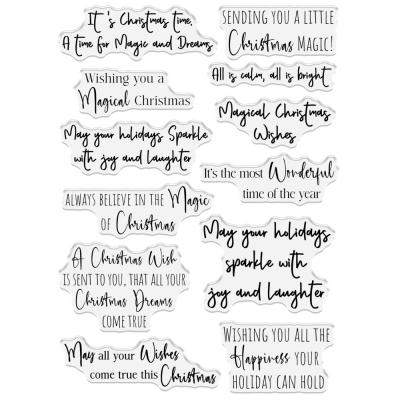 It's Christmas time,
A time for Magic and Dreams
Wishing you a
Magical Christmas
May your holidays Sparkle
with joy and laughter
ALWAYS BELIEVE IN THE Magic
OF Christmas
A Christmas Wish
IS SENT TO YOU, THAT ALL YOUR
Christmas Dreams
COME TRUE
May all your Wishes
come true this Christmas
SENDING YOU A LITTLE
Christmas MAGIC!
All is calm, all is bright
Magical Christmas
Wishes
It's the most Wonderful
time of the year
May your holidays
sparkle with
joy and laughter
WISHING YOU ALL THE
Happiness YOUR
HOLIDAY CAN HOLD